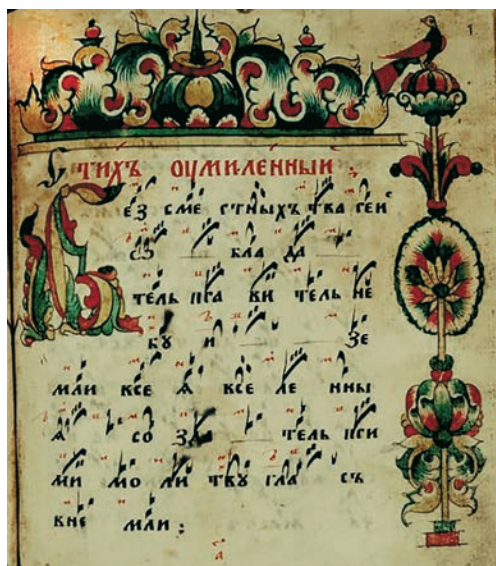 1
Стихъ оумиленныи :
Без сме ртныхъ тва реи
бла да
тель пра ви тель не
бꙋ и зе
мли все ѧ все ле нны
ѧ со зда тель при
ми мо ли твꙋ гла съ
вне мли :